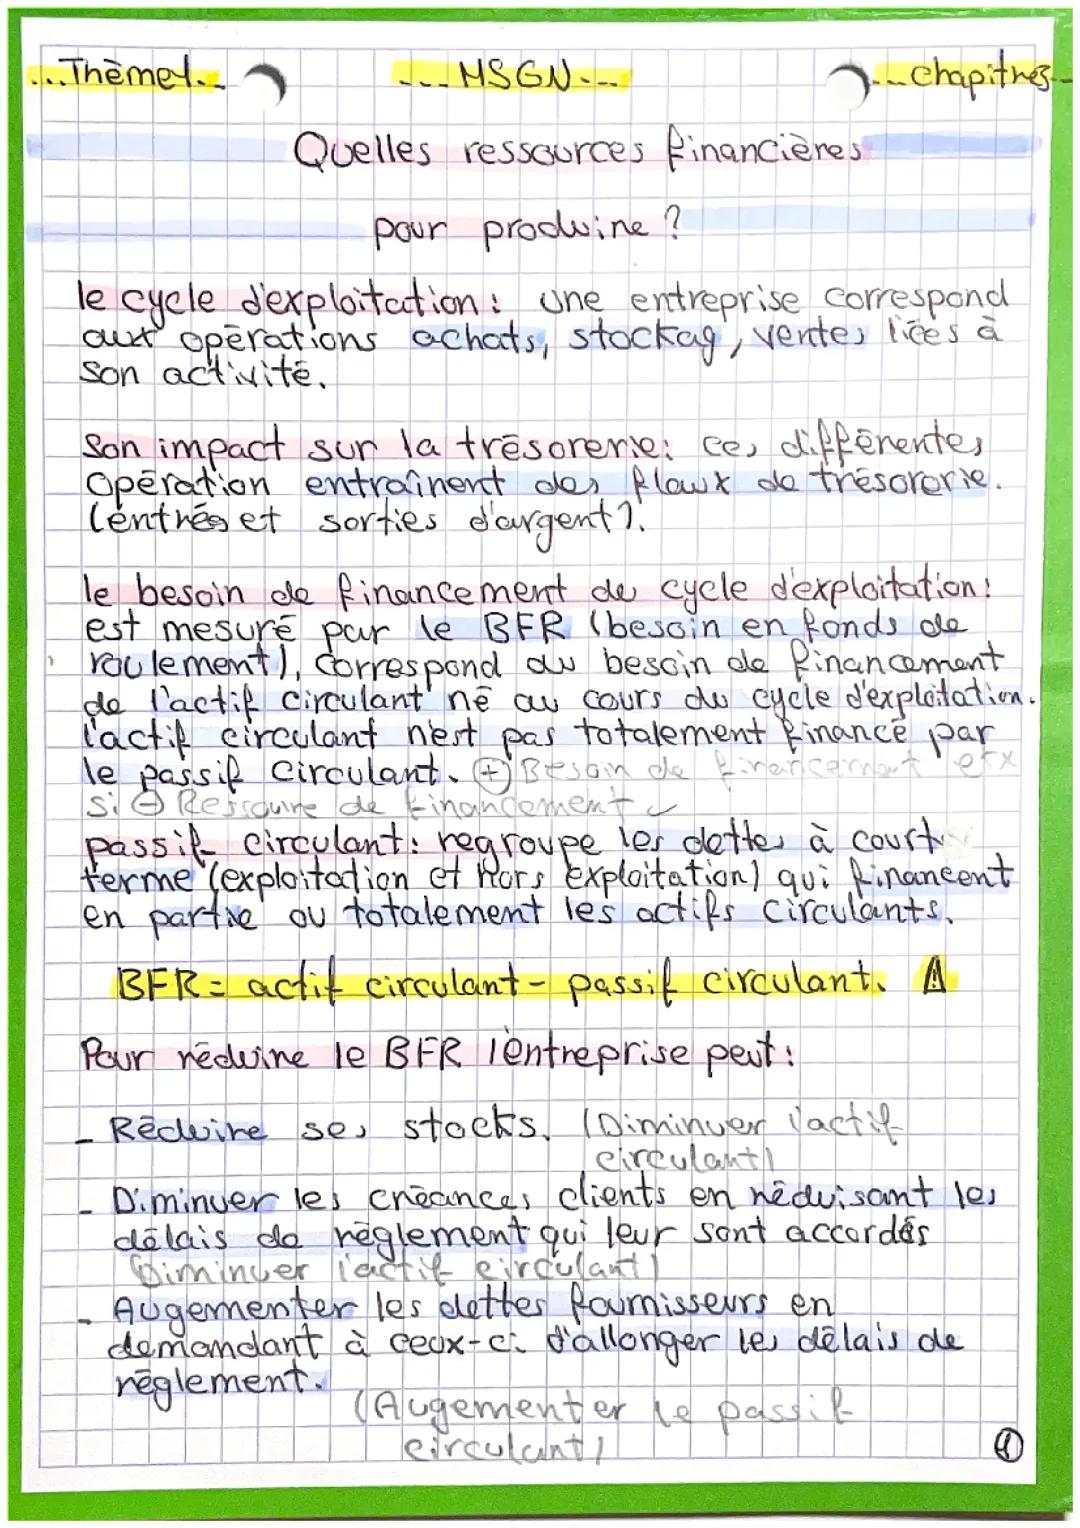 ...Thème1...
... MSGN...
...chapitre3...
Quelles ressources financières
pour produire ?
le cycle d'exploitation : une entreprise correspond
aux opérations achats, stockag, ventes liées à
son activité.
Son impact sur la trésorerie : ces différentes
opération entraînent des flaux de trésorerie.
(entrées et sorties d'argent).
le besoin de financement de cycle d'exploitation :
est mesuré par le BFR (besoin en fonds de
roulement), correspond au besoin de financement
de l'actif circulant né au cours du cycle d'exploitation.
l'actif circulant n'est pas totalement financé par
le passif circulant. (+) Besoin de financement
si (-) Ressource de financement
passif circulant : regroupe les dettes à court
terme (exploitation et hors exploitation) qui financent
en partie ou totalement les actifs circulants.
BFR = actif circulant - passif circulant. ⚠
Pour réduire le BFR l'entreprise peut :
- Réduire ses stocks. (Diminuer l'actif
circulant)
- Diminuer les créances clients en réduisant les
délais de règlement qui leur sont accordés
(Diminuer l'actif circulant)
- Augementer les dettes fournisseurs en
demandant à ceux-ci d'allonger les délais de
règlement.
(Augementer le passif
circulant)
1